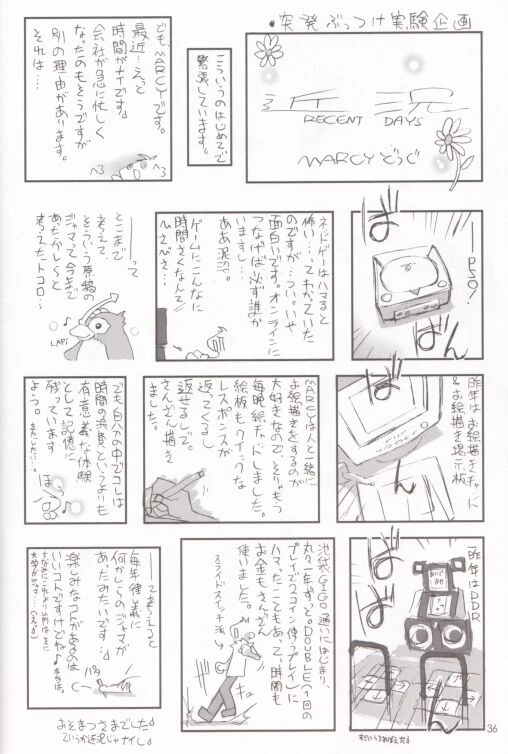 ・突発ぶっつけ実験企画
近況
RECENT DAYS
MARCYどうぐ
こういうのはじめてで
緊張しています。
ども、MARCYです。
最近…えっと
時間がナイです。
会社が急に忙しく
なったのもそうですが
別の理由があります。
それは…
ばばん
――PSO!
ネトゲーはハマると
怖い…ってわかっていた
のですが…ついい…いや
面白いです。オンラインに
つなげば必ず誰か
いますし…
ああ泥沼。
ゲームにこんなに
時間さくなんて
――って
とこまで
考えて
そういう原稿の
ジャマって今まで
あたかしらと
考えたトコロ…
LAPi
ばばん
昨年はお絵描きチャット
&お絵描き掲示板
MARCYは人と一緒に
お絵描きをするのが
大好きなので、とりもう
毎晩絵チャットしました。
絵板もクイックな
レスポンスが
返ってくるし
返せるしで。
さんざん描き
ました。
でも自分の中でコレは
時間の浪費というよりも
有意義な体験
として記憶に
残っています
よう。
またしたい…。
ほっ
ばばん
一昨年はDDR
池袋GIGO通いにはじまり、
丸々一年ずっと。DOUBLE(1回の
プレイで2コイン使うプレイ)に
ハマったこともあって時間も
お金もさんざん
使いました。
スライドスイッチ派
――て考えると
毎年律義に
何かしらのジャマが
あったみたいです:」
楽しみなコトがあるのは
いいコトですけどね♪
ちなみにこれより以前はまに
大学がジャマ…。
おそまつさまでした♪
ていうか近況じゃナイし♪
36